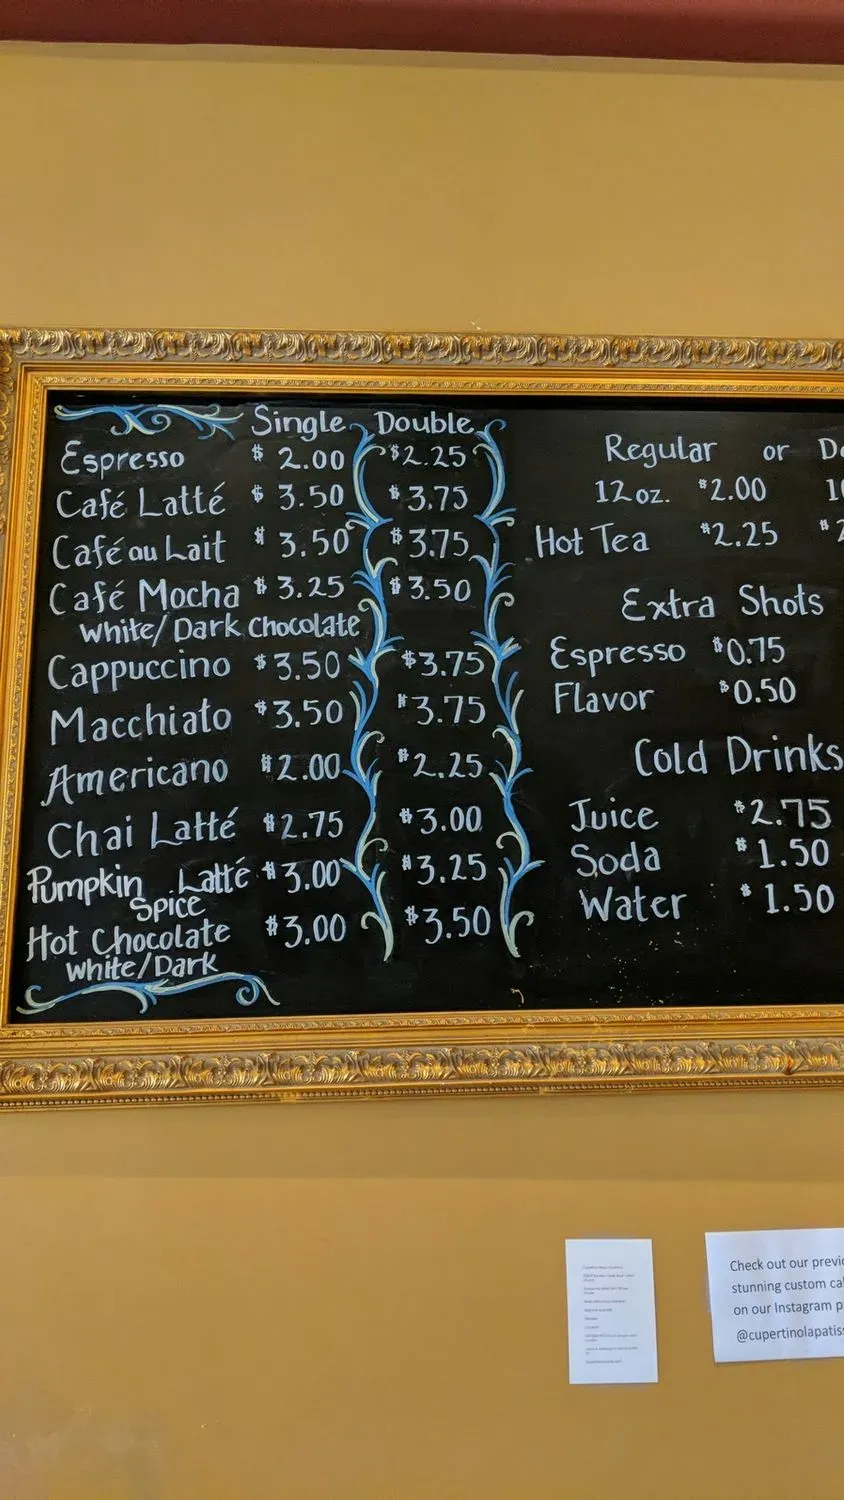 Single Double
Espresso $ 2.00 $2.25
Café Latté $ 3.50 $3.75
Café au Lait $ 3.50 $3.75
Café Mocha $ 3.25 $3.50
White/Dark Chocolate
Cappuccino $3.50 $3.75
Macchiato $3.50 $3.75
Americano $2.00 $2.25
Chai Latté $2.75 $3.00
Pumpkin Latté $3.00 $3.25
Spice
Hot Chocolate $3.00 $3.50
White/Dark
Regular or
12 oz. $2.00
Hot Tea $2.25
Extra Shots
Espresso $0.75
Flavor $0.50
Cold Drinks
Juice $2.75
Soda $1.50
Water $1.50
Check out our
stunning custom
on our Instagram
@cupertinolapatiss